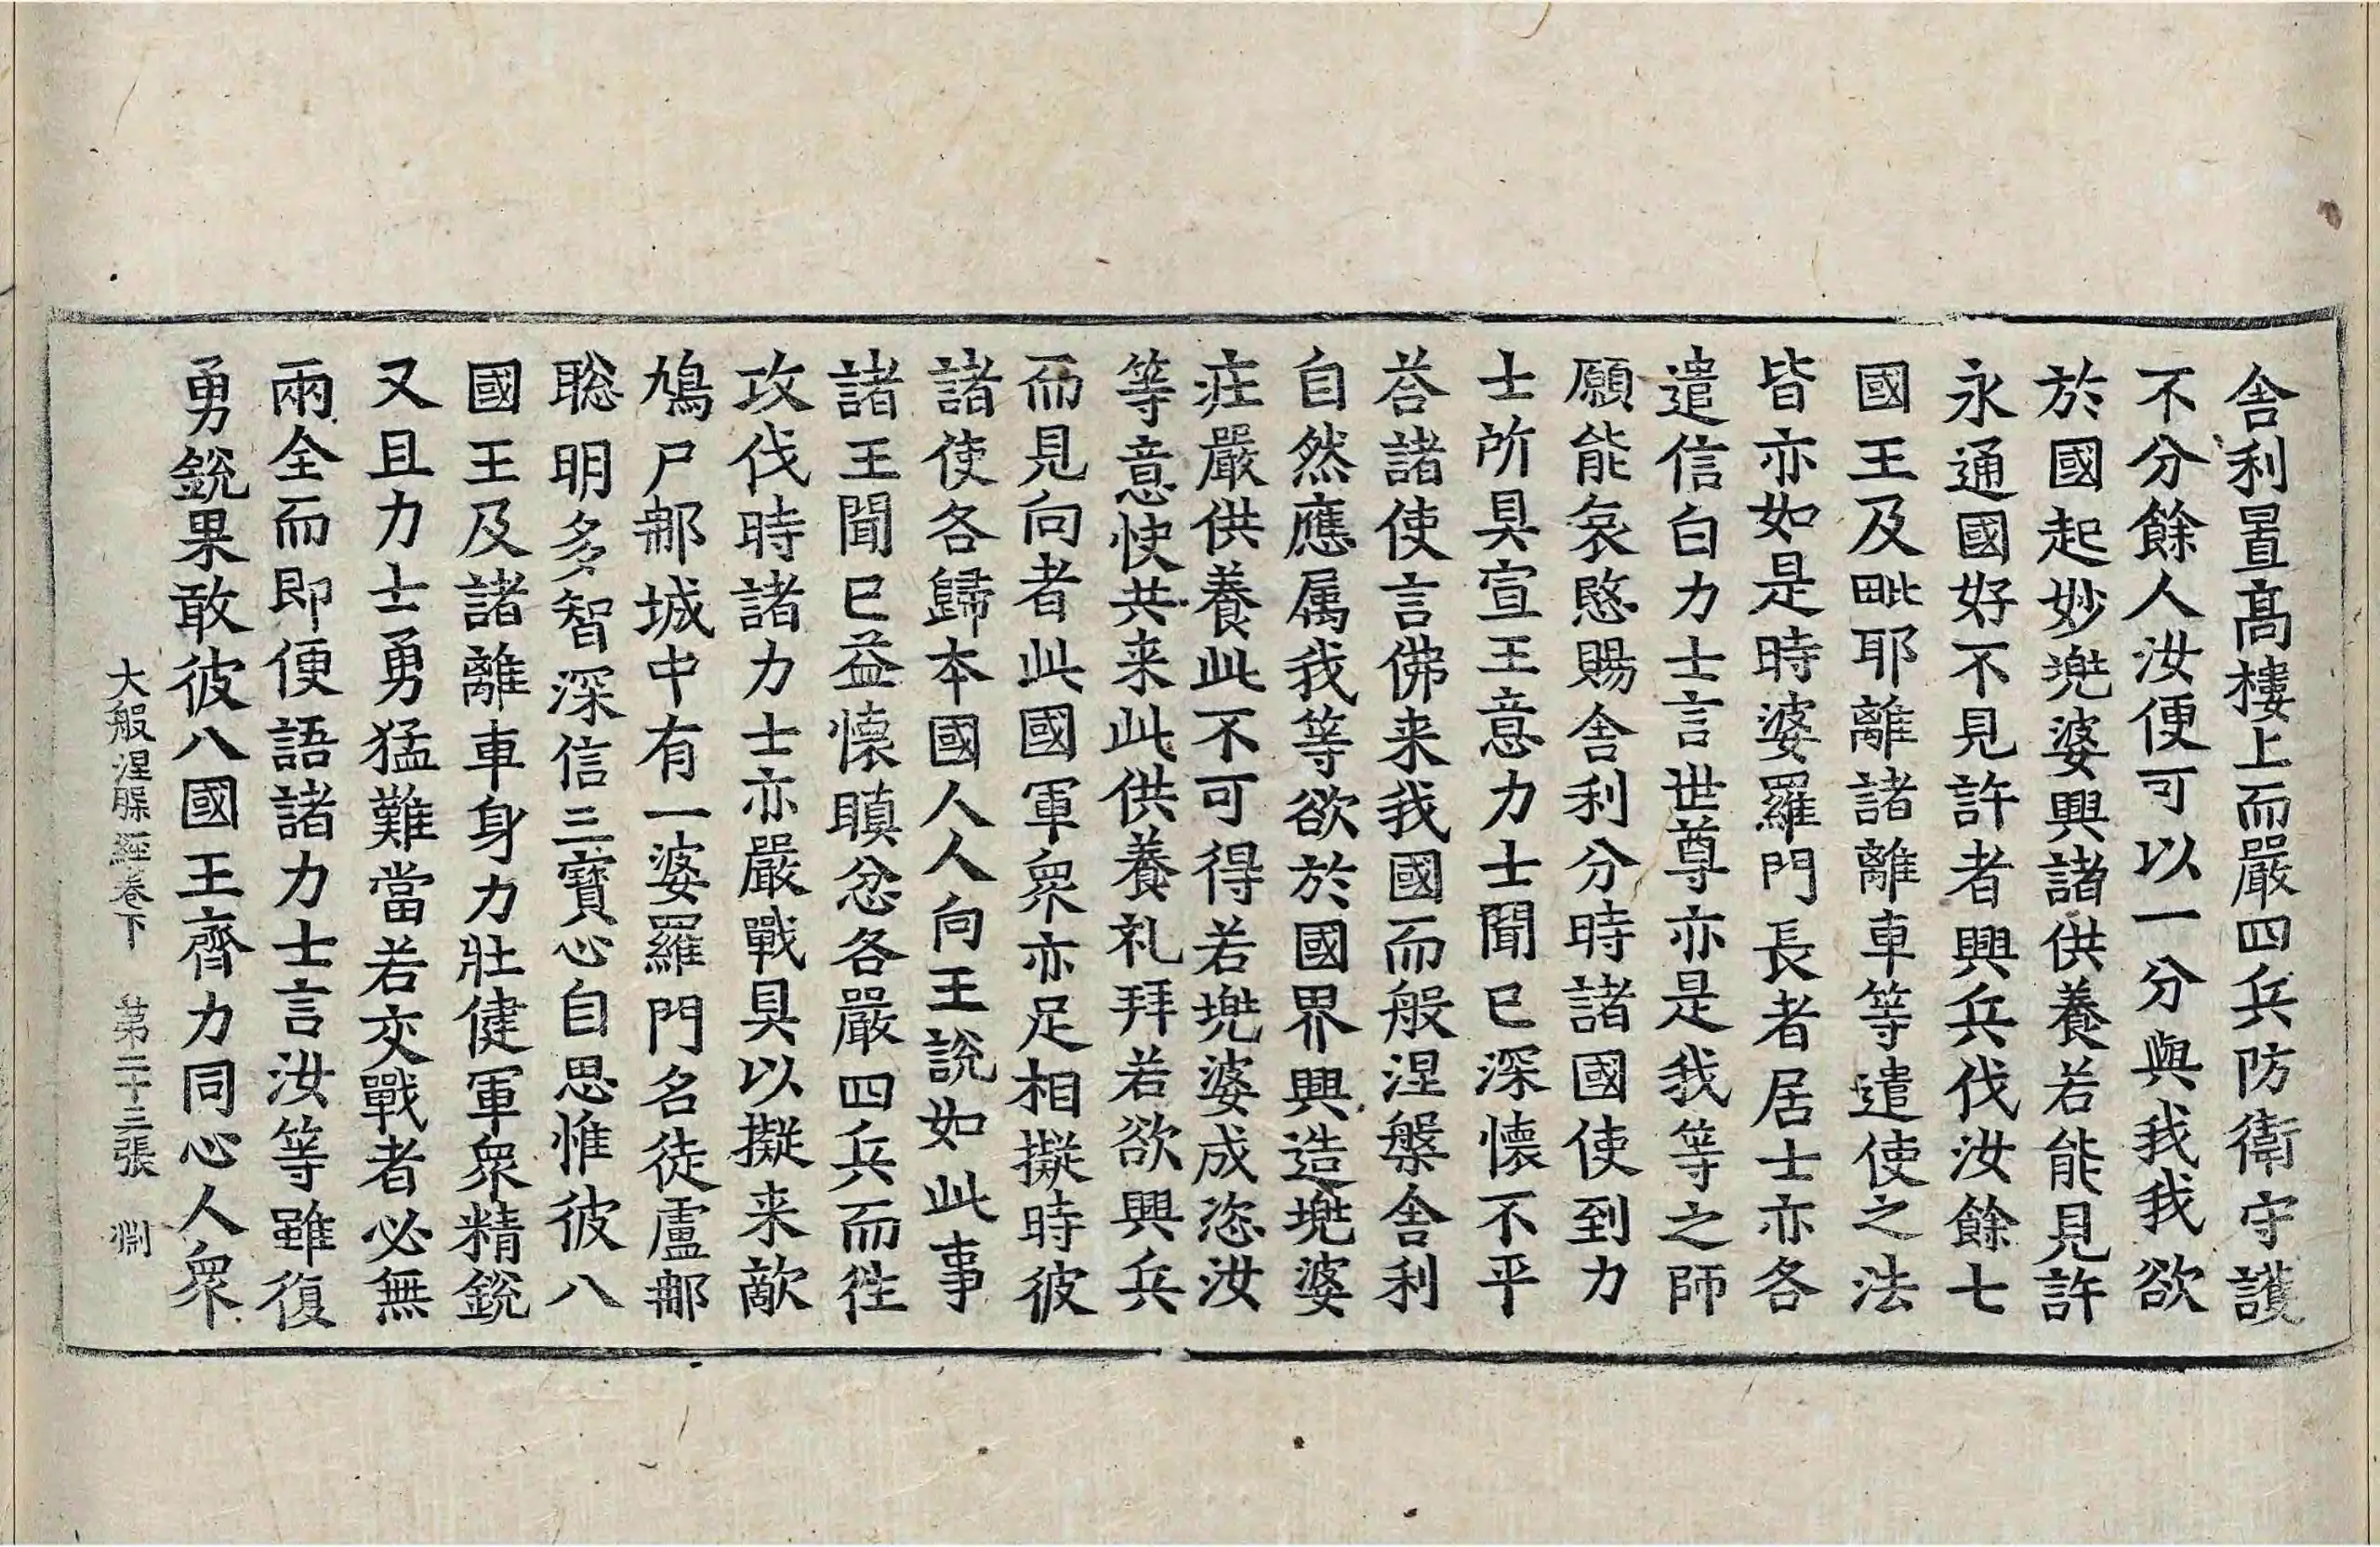 舎利置髙樓上而嚴四兵防衛守護
不分餘人汝便可以一分與我我欲
於國起妙兠婆興諸供養若能見許
永通國好不見許者興兵伐汝餘七
國王及毗耶離諸離車等遣使之法
皆亦如是時婆羅門長者居士亦各
遣信白力士言世尊亦是我等之師
願能哀愍賜舎利分時諸國使到力
士所具宣王意力士聞已深懷不平
荅諸使言佛来我國而般涅槃舎利
自然應属我等欲於國界興造塊婆
疰嚴供養此不可得若塊婆成恣汝
等意快共来此供養礼拜若欲興兵
而見向者此國軍衆亦足相擬時彼
諸使各歸本國人人向王說如此事
諸王聞已益懷瞋忿各嚴四兵而徃
攻伐時諸力士亦嚴戰具以擬来敵
鳩尸𨚗城中有一婆羅門名徒盧𨚗
聡明多智深信三寶心自思惟彼八
國王及諸離車身力壯健軍衆精銳
又且力士勇猛難當若交戰者必無
兩全而即便語諸力士言汝等雖復
勇銳果敢彼八國王齊力同心人衆
大般涅槃經卷下　第二十三張　渊